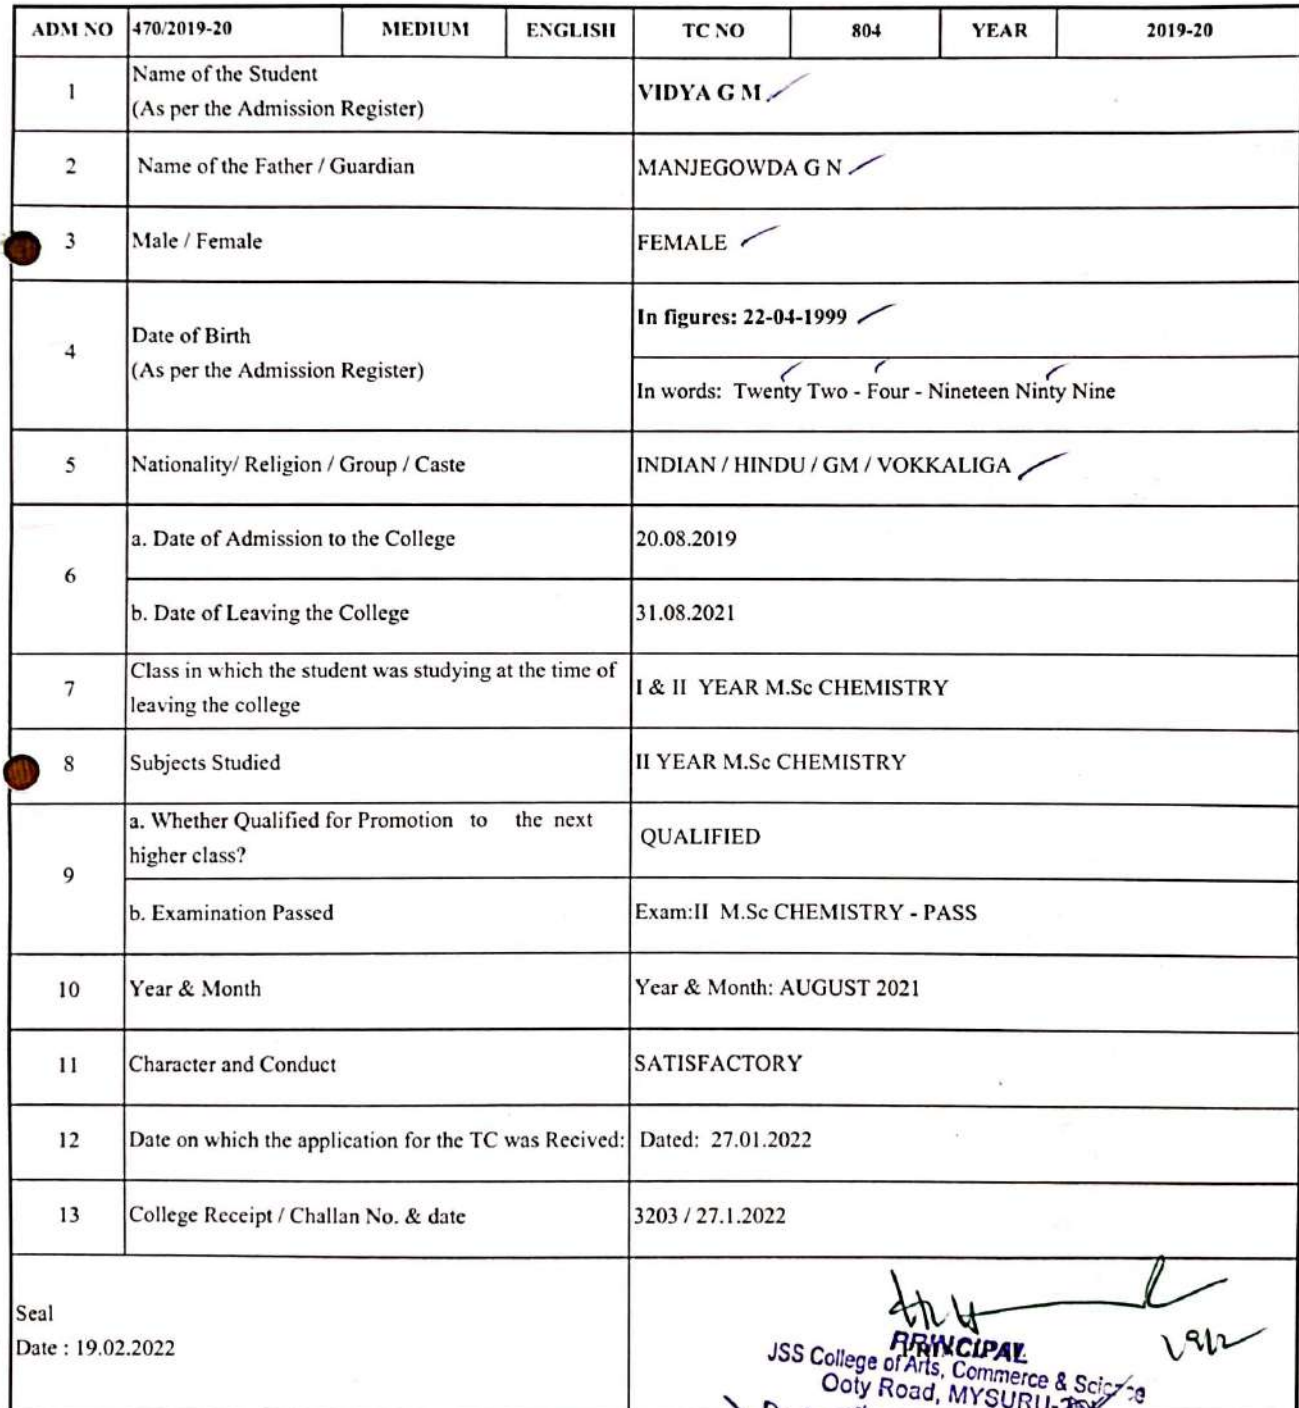 ADM NO 470/2019-20 MEDIUM ENGLISH TC NO 804 YEAR 2019-20
1 Name of the Student
(As per the Admission Register) VIDYA G M
2 Name of the Father / Guardian MANJEGOWDA G N
3 Male / Female FEMALE
4 Date of Birth
(As per the Admission Register)
In figures: 22-04-1999
In words: Twenty Two - Four - Nineteen Ninty Nine
5 Nationality/ Religion / Group / Caste INDIAN / HINDU / GM / VOKKALIGA
6 a. Date of Admission to the College 20.08.2019
b. Date of Leaving the College 31.08.2021
7 Class in which the student was studying at the time of
leaving the college I & II YEAR M.Sc CHEMISTRY
8 Subjects Studied II YEAR M.Sc CHEMISTRY
9 a. Whether Qualified for Promotion to the next
higher class? QUALIFIED
b. Examination Passed Exam:II M.Sc CHEMISTRY - PASS
10 Year & Month Year & Month: AUGUST 2021
11 Character and Conduct SATISFACTORY
12 Date on which the application for the TC was Recived: Dated: 27.01.2022
13 College Receipt / Challan No. & date 3203 / 27.1.2022
Seal
Date : 19.02.2022
PRINCIPAL
JSS College of Arts, Commerce & Science
Ooty Road, MYSURU-